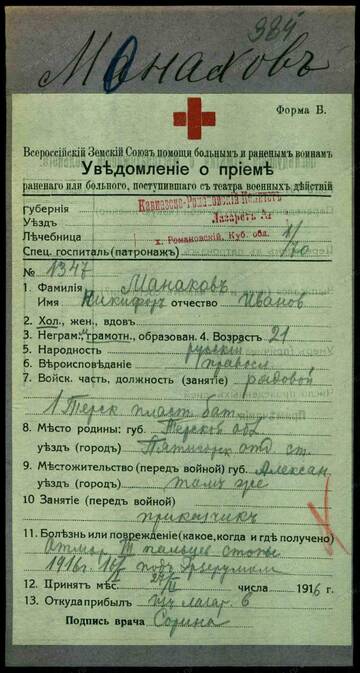 384
Монаховъ
Форма В.
Всероссійскій Земскій Союзъ помощи больнымъ и раненымъ воинамъ
Увѣдомленіе о пріемѣ
раненаго или больного, поступившаго съ театра военныхъ дѣйствій
губернія
Уѣздъ Лазаретъ №
Лѣчебница х. Романовскій, Куб. обл.
Спец. госпиталь (патронажъ) 1/70
№ 1347
1. Фамилія Манаковъ
Имя Никифоръ отчество Иванов
2. Хол., жен., вдовъ
3. Неграм., грамотн., образован. 4. Возрастъ 21
5. Народность русскій
6. Вѣроисповѣданіе правосл
7. Войск. часть, должность (занятіе) рядовой
1 Терск пласт. бат.
8. Мѣсто родины: губ. Терской обл
уѣздъ (городъ) Пятигорск отд. ст.
9. Мѣстожительство (передъ войной) губ. Алексан
уѣздъ (городъ) там же
10 Занятіе (передъ войной)
приказчикъ
11. Болѣзнь или поврежденіе (какое, когда и гдѣ получено)
Отмор. III пальцев стопы
1916г. под Эрзерумом
12. Принятъ мѣс. числа 1916 г.
13. Откуда прибылъ из лазар. 6
Подпись врача Сорина